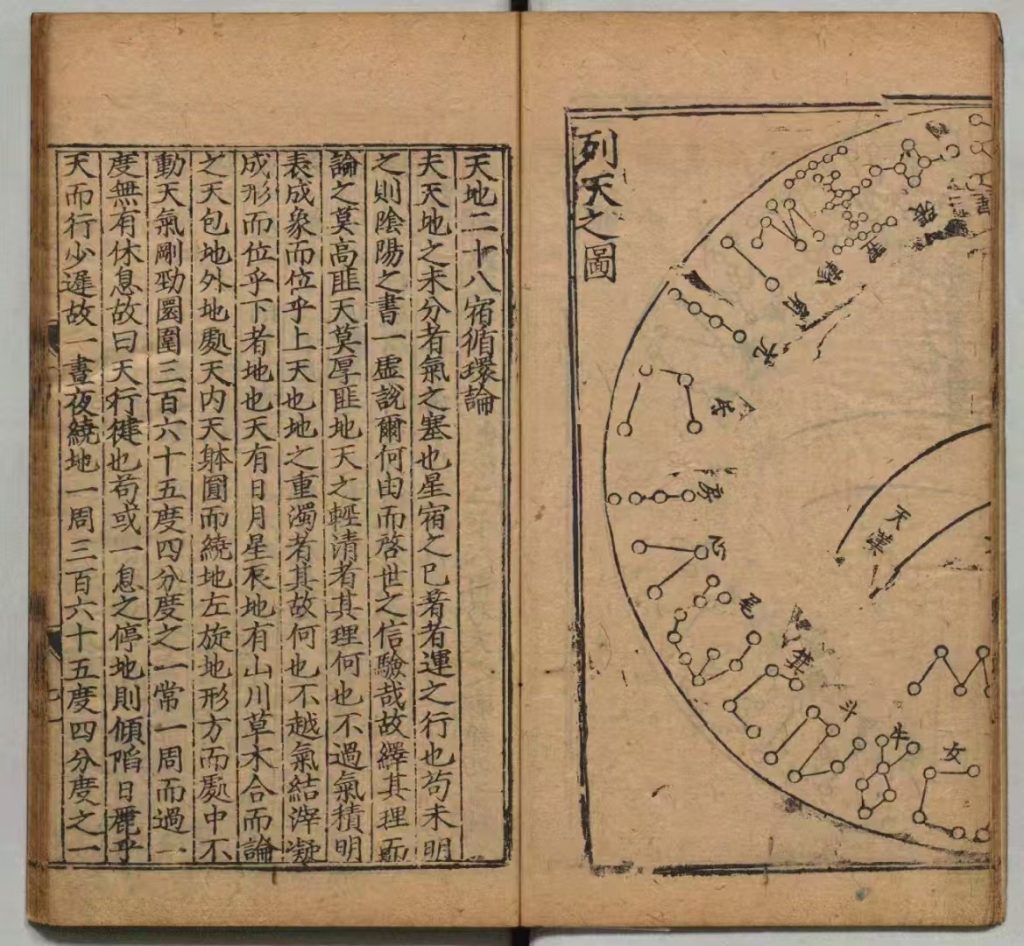 列天之圖
翼
軫
角
亢
氐
房
心
尾
箕
斗
牛
女
天漢
天地二十八宿循環論
夫天地之未分者氣之塞也星宿之已著者運之行也苟未明
之則陰陽之書一虛說爾何由而啓世之信驗哉故繹其理而
論之莫高匪天莫厚匪地天之輕清者其理何也不過氣積明
表成象而位乎上天也地之重濁者其故何也不越氣結滓凝
成形而位乎下者地也天有日月星辰地有山川草木合而論
之天包地外地處天内天躰圓而繞地左旋地形方而處中不
動天氣剛勁圜圍三百六十五度四分度之一常一周而過一
度無有休息故曰天行徤也苟或一息之停地則傾陷日麗乎
天而行少遲故一晝夜繞地一周三百六十五度四分度之一